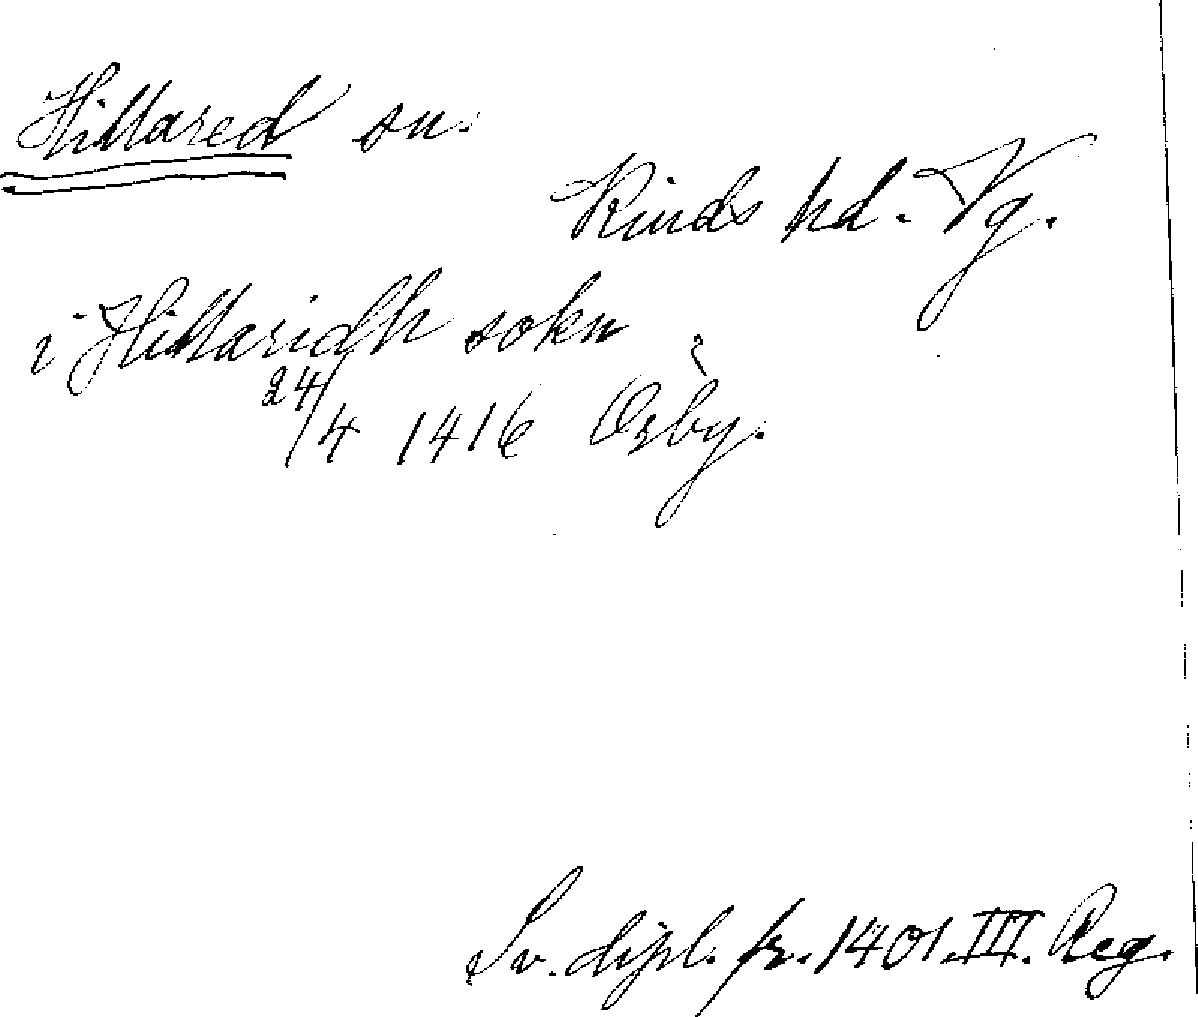 Hillared sn.
Kinds hd. Vg.
i Hillaridh sokn
24/4 1416 Orby.
Sv. dipl. fr. 1401. III. Reg.